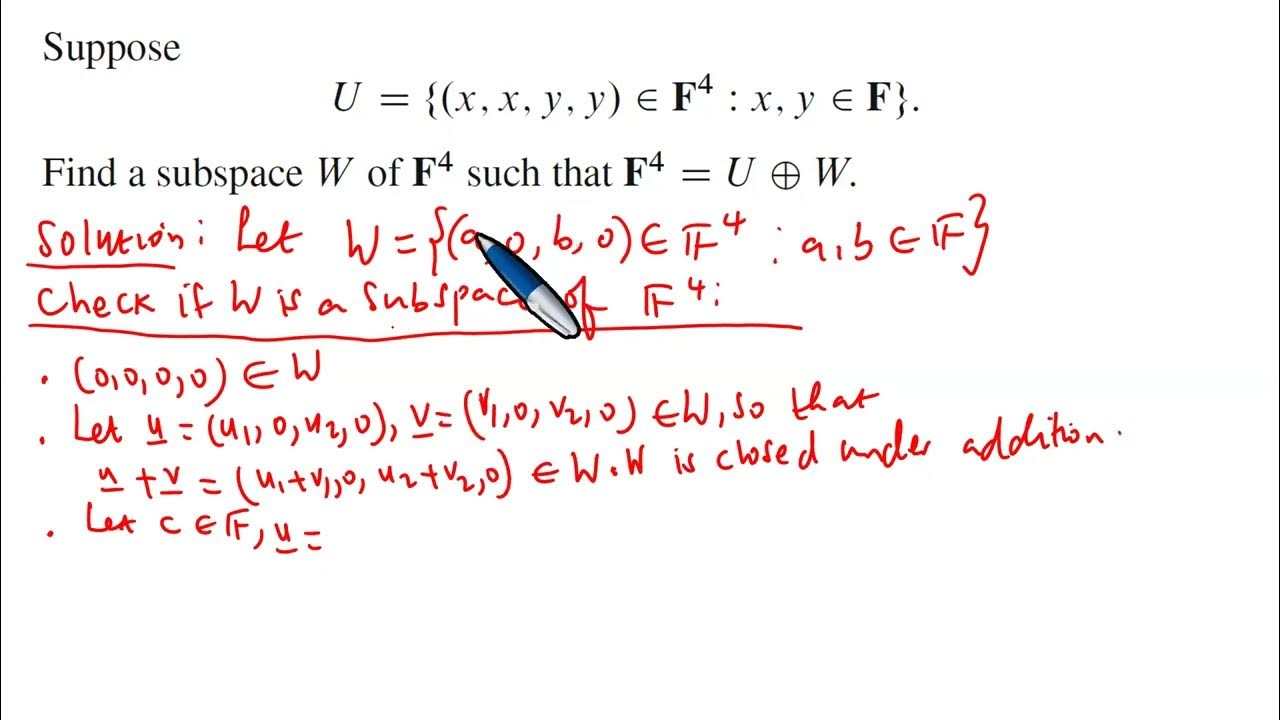 Suppose
U = {(x, x, y, y) ∈ F⁴ : x, y ∈ F}.
Find a subspace W of F⁴ such that F⁴ = U ⊕ W.
Solution: Let W = {(a, 0, b, 0) ∈ 𝔽⁴ : a, b ∈ 𝔽}
Check if W is a subspace of 𝔽⁴:
· (0,0,0,0) ∈ W
· Let u = (u₁, 0, u₂, 0), v = (v₁, 0, v₂, 0) ∈ W, so that
u + v = (u₁+v₁, 0, u₂+v₂, 0) ∈ W. W is closed under addition.
· Let c ∈ 𝔽, u =